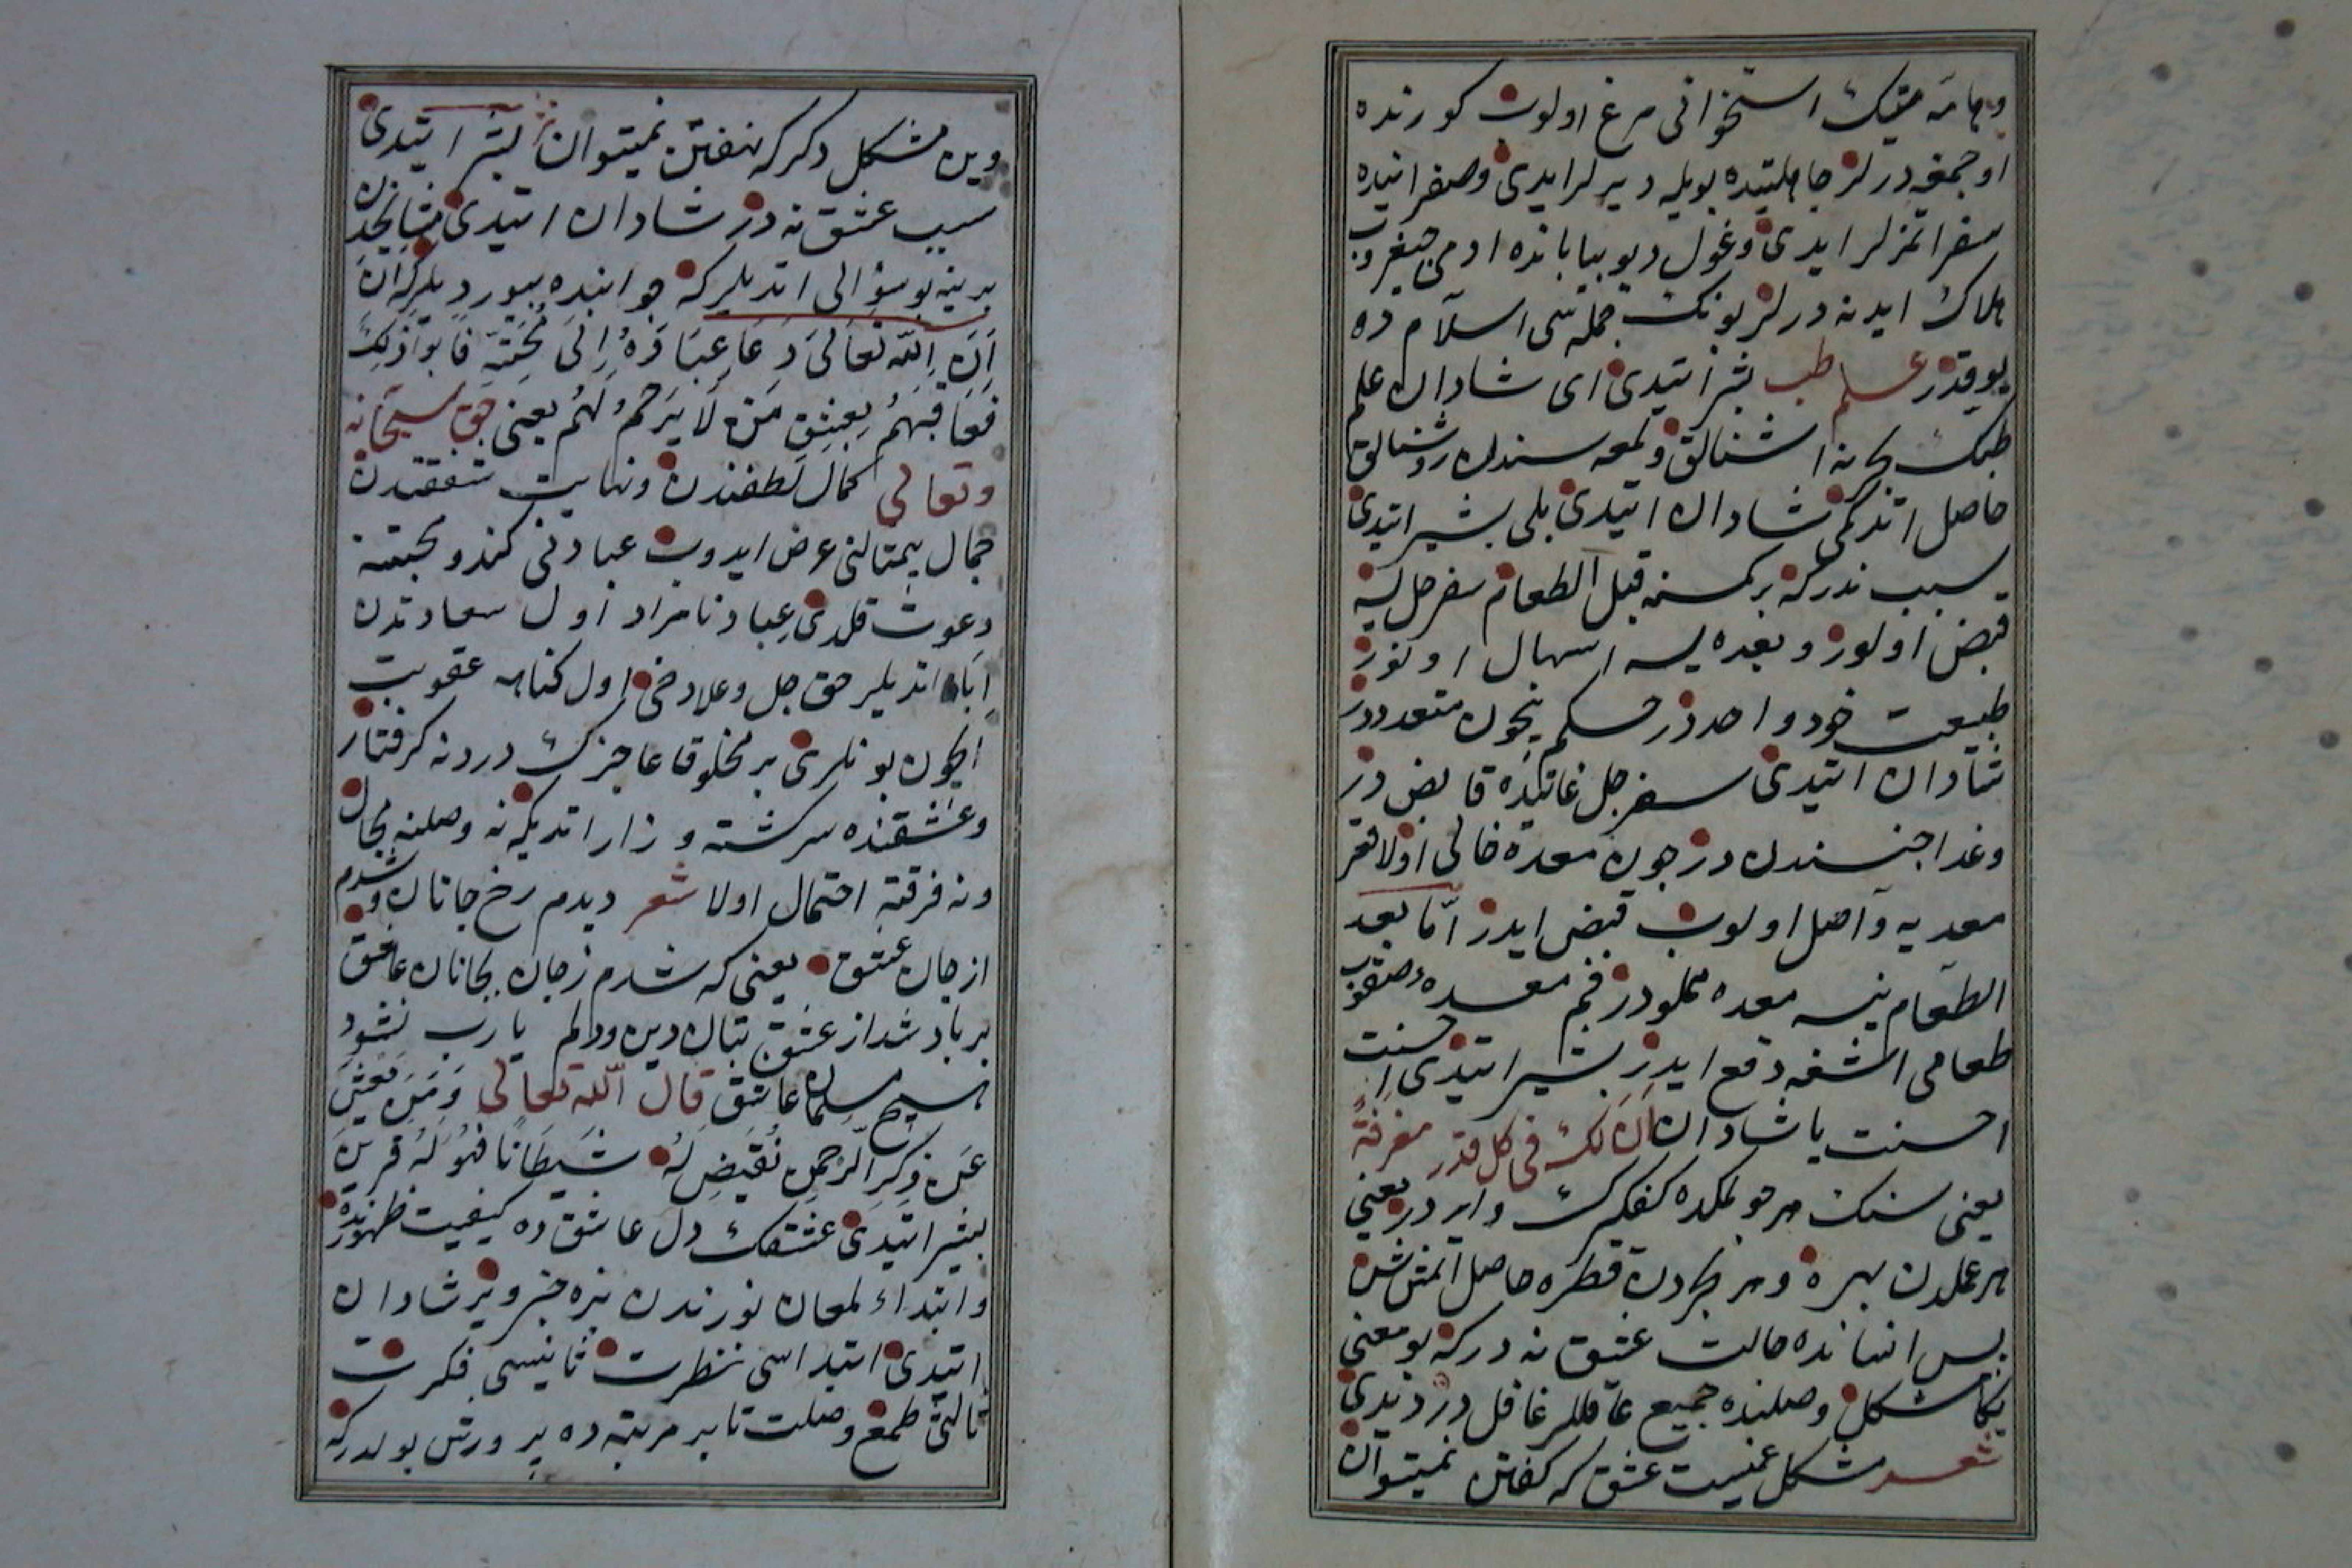 وهامه ميتك استخوانى مرغ اولوب كورنده
اوجمغه درلر جاهليتده بويله ديرلر ايدى وصفر اينده
سفر اتمزلر ايدى وغول ديو بيابانده ادمى چيغروب
هلاك ايدنه درلر بونك جمله سى اسلام ده
يوقدر علم طب بشير ايتدى اى شادان علم
طبك بحرنه اشنالق ولمعه سندن روشنالق
حاصل اتدكمى شادان ايتدى بلى بشير ايتدى
سبب ندركه بر كسنه قبل الطعام سفرجل يسه
قبض اولور وبعده يسه اسهال اولنور
طبيعت خود واحددر حكم نيچون متعدددر
شادان ايتدى سفرجل غايتيده قابضدر
وغدا جنسندن در چون معده خالى اولا قعر
معديه واصل اولوب قبض ايدر اما بعد
الطعام ينسه معده مملودر فم معده صقوب
طعامى اشغه دفع ايدر بشير ايتدى احسنت
احسنت يا شادان ان لك فى كل قدر مغرفة
يعنى سنك هر چولمكده كفكيرك وايردر يعنى
هر عملدن بهره وهر بحردن قطره حاصل اتمش سن
پس انسانده حالت عشق نه دركه بو معنى
يكا مشكل وصلنده جميع عاقللر غافل دردندى
شعر مشكل غميست عشق كه كفتن نميتوان
وين مشكل دكر كه نهفتن نميتوان بشير ايتدى
سبب عشق نه در شادان ايتدى مشايخدن
برينه بو سؤالى اتديلر كه جوابنده بيورديلركه ان
ان الله تعالى دعا عباده الى محبته فابوا ذلك
فعاقبهم بعشق من لا يرحم لهم يعنى حق سبحانه
وتعالى كمال لطفندن ونهايت شفقتندن
جمال بيمثالنى عرض ايدوب عبادنى كندو محبتنه
دعوت قلدى عباد نامراد اول سعادتدن
ابا اتديلر حق جل وعلا دخى اول كناهه عقوبت
ايچون بونلرى بر مخلوق عاجزك دردنه كرفتار
وعشقنده سركشته وزار اتديكه نه وصلنه مجال
ونه فرقته احتمال اولا شعر ديدم رخ جانان وشدم
از جان عشق يعنى كه شدم زجان بجانان عاشق
بر باد شد از عشق بتان دين ودلم يا رب نشود
هيچ مسلمان عاشق قال الله تعالى ومن يعش
عن ذكر الرحمن نقيض له شيطانا فهو له قرين
بشير ايتدى عشقك دل عاشق ده كيفيت ظهورنده
وابتداء لمعان نورندن بزه خبر وير شادان
ايتدى ابتداسى نظرت ثانيسى فكرت
ثالثى طمع وصلت تا بر مرتبه ده پرورش بولدركه